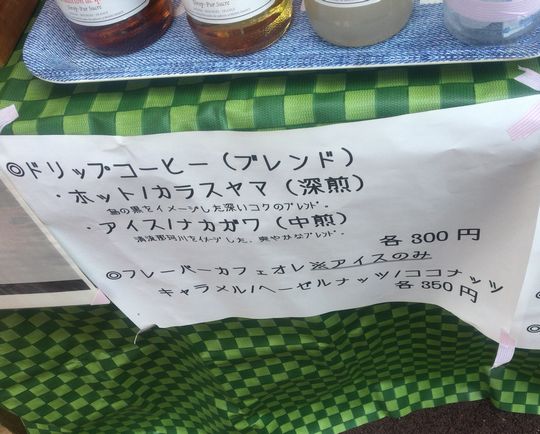 Sirop · Pur Sucre
Sirop · Pur Sucre
◎ドリップコーヒー(ブレンド)
・ホット/カラスヤマ(深煎)
烏の黒をイメージした深いコクのブレンド。
・アイス/ナカガワ(中煎)
清流那珂川をイメージした、爽やかなブレンド。
各300円
◎フレーバーカフェオレ ※アイスのみ
キャラメル/ヘーゼルナッツ/ココナッツ
各350円